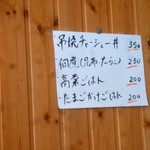 吊焼チャーシュー丼 350
・佃煮(昆布・たらこ) 230
・高菜ごはん 200
・たまごかけごはん 200